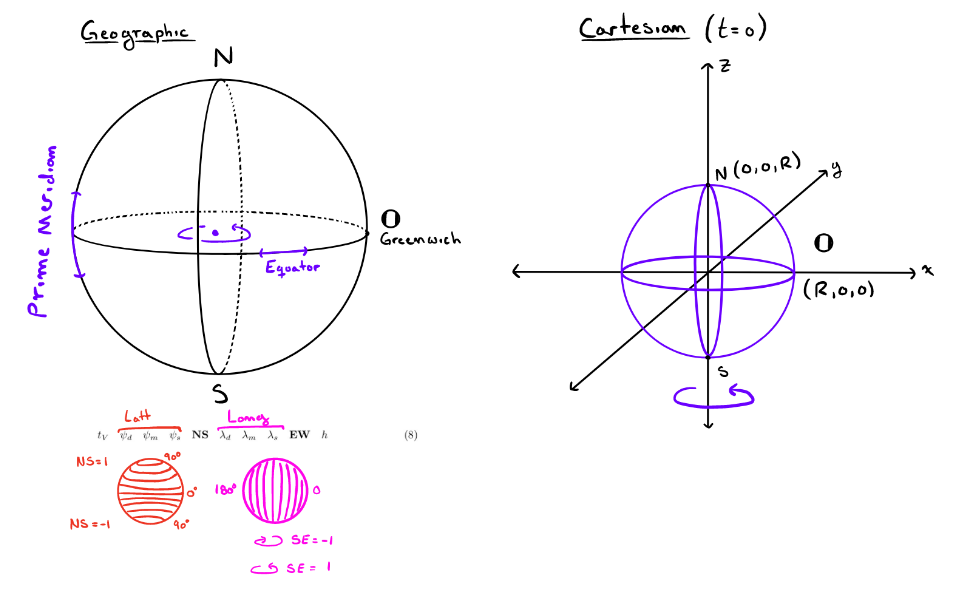 Geographic
N
Prime Meridian
O
Greenwich
Equator
S
Latt
Long
t_V ψ_d ψ_m ψ_s NS λ_d λ_m λ_s EW h (8)
NS=1
90°
0°
NS=-1
90°
180°
0
SE=-1
SE= 1
Cartesian (t=0)
z
N (0,0,R)
y
O
x
(R,0,0)
S